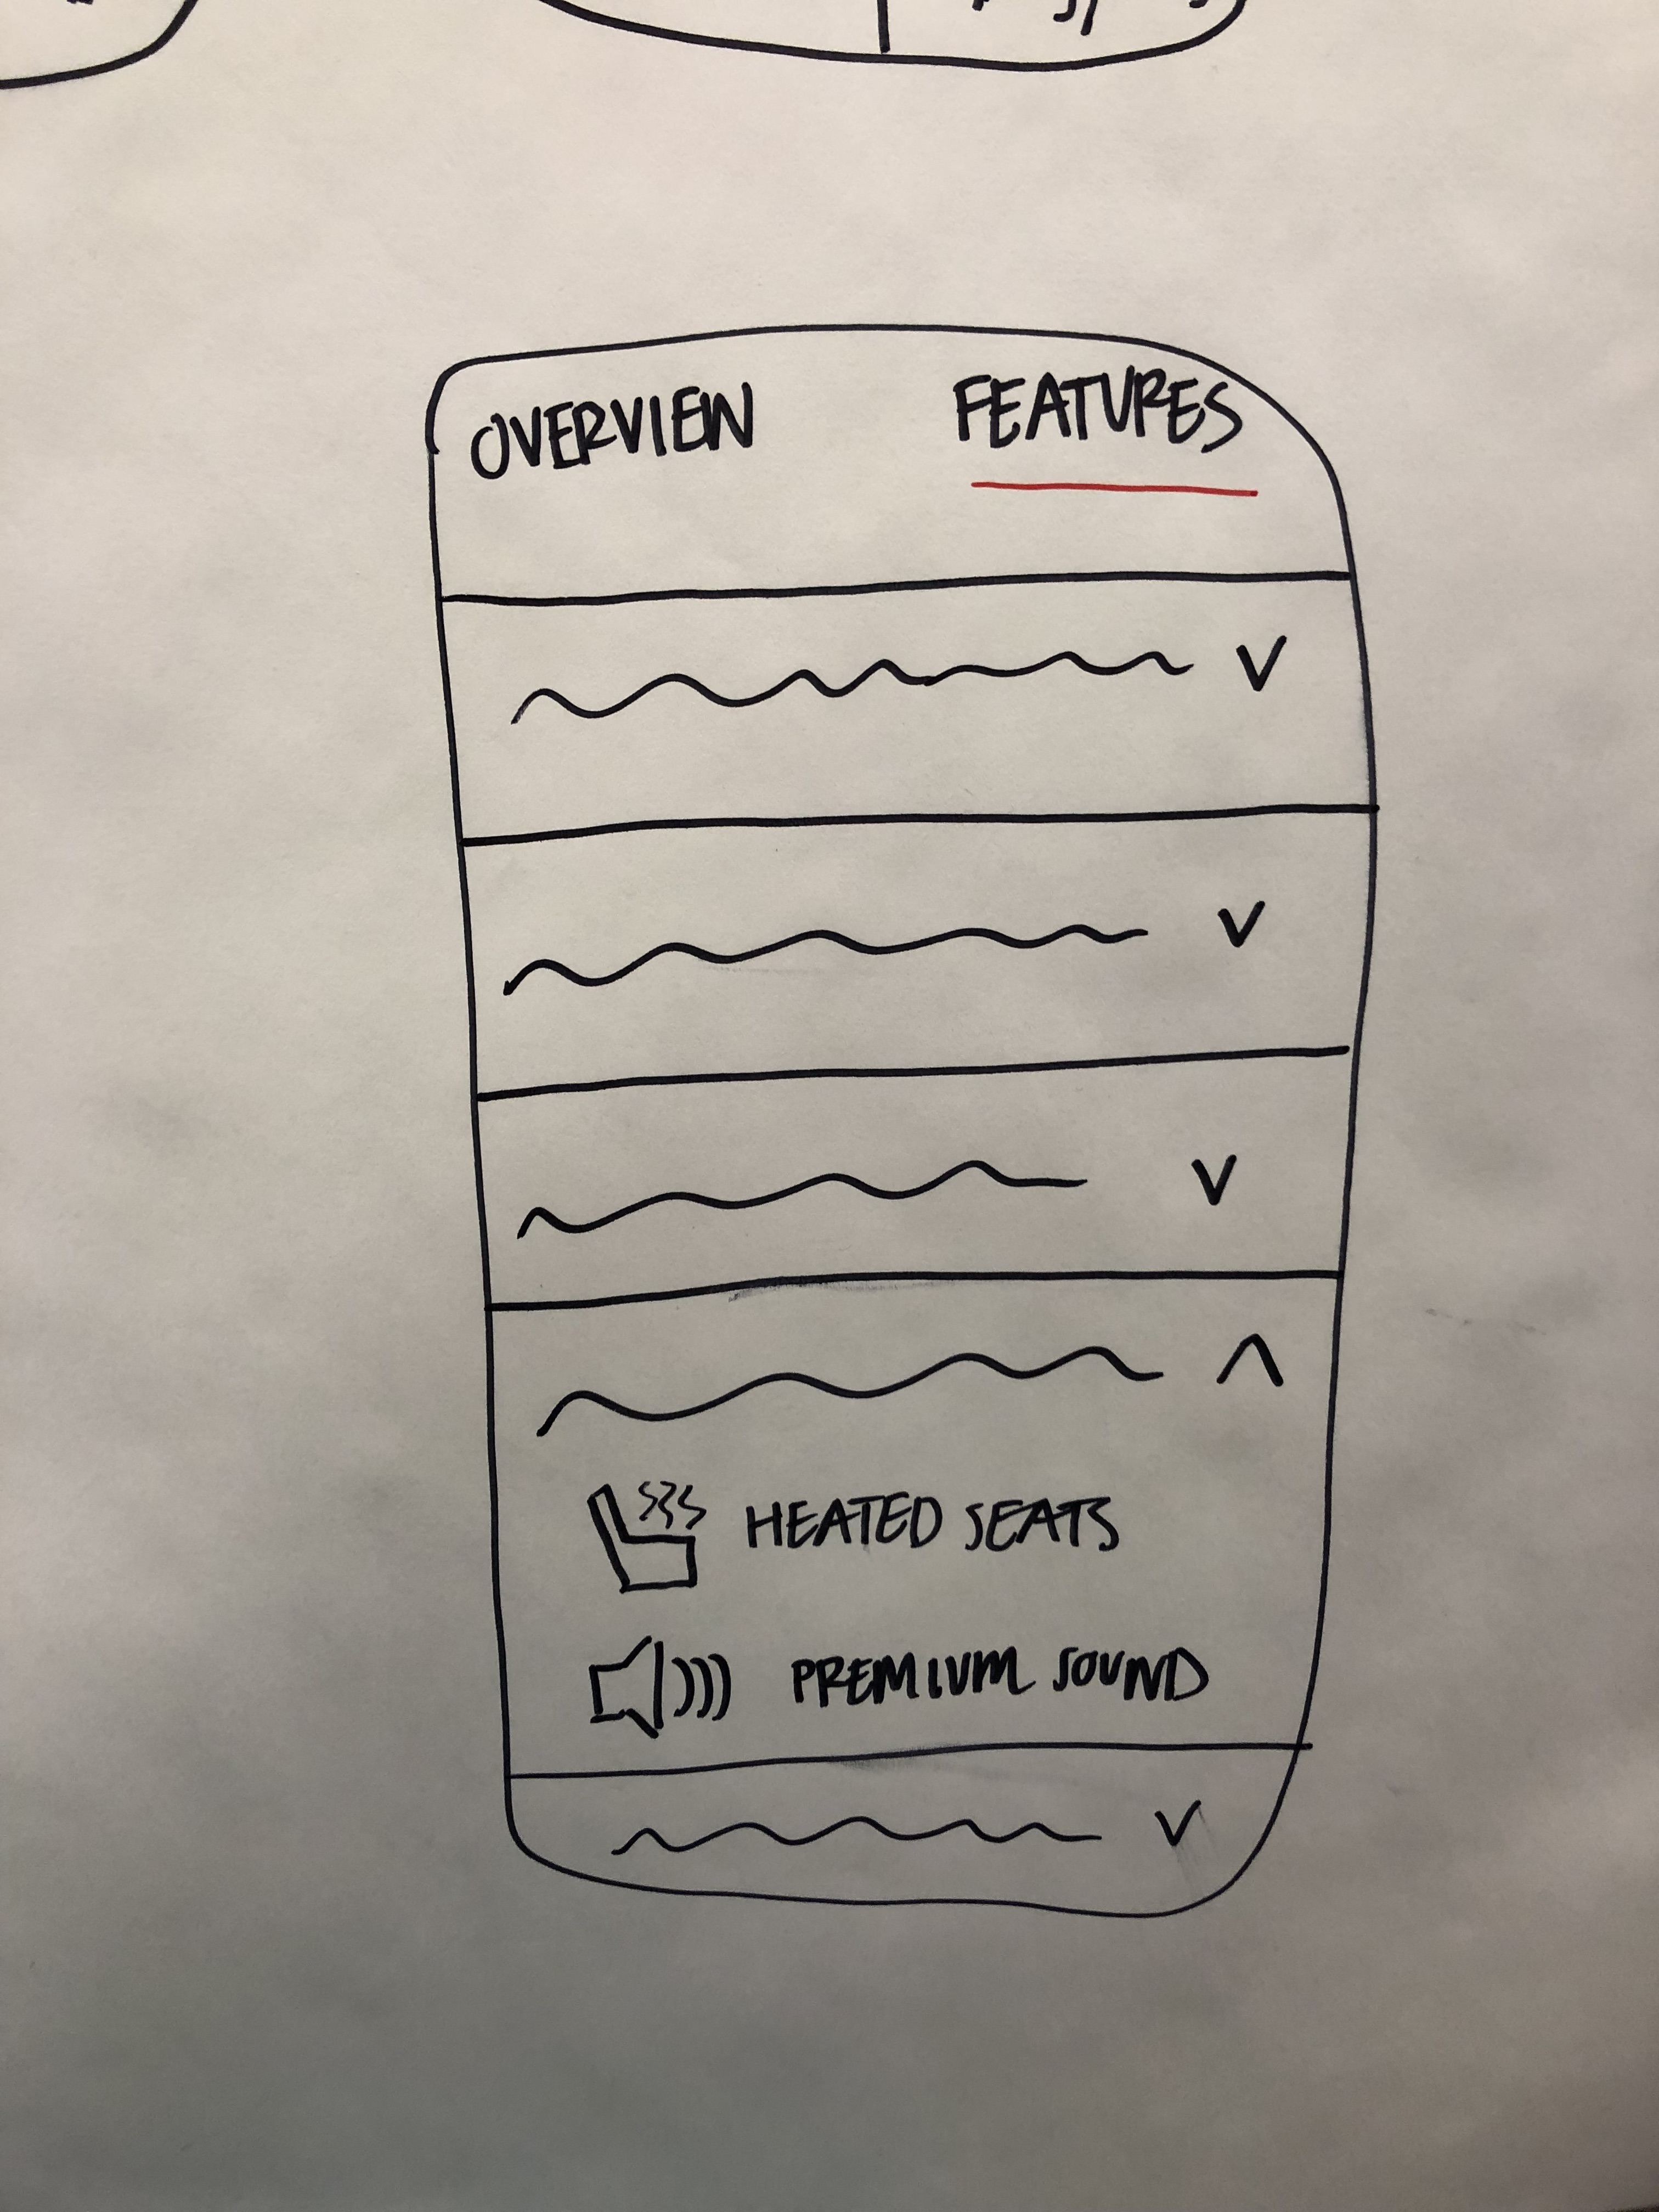 OVERVIEW FEATURES
HEATED SEATS
PREMIUM SOUND